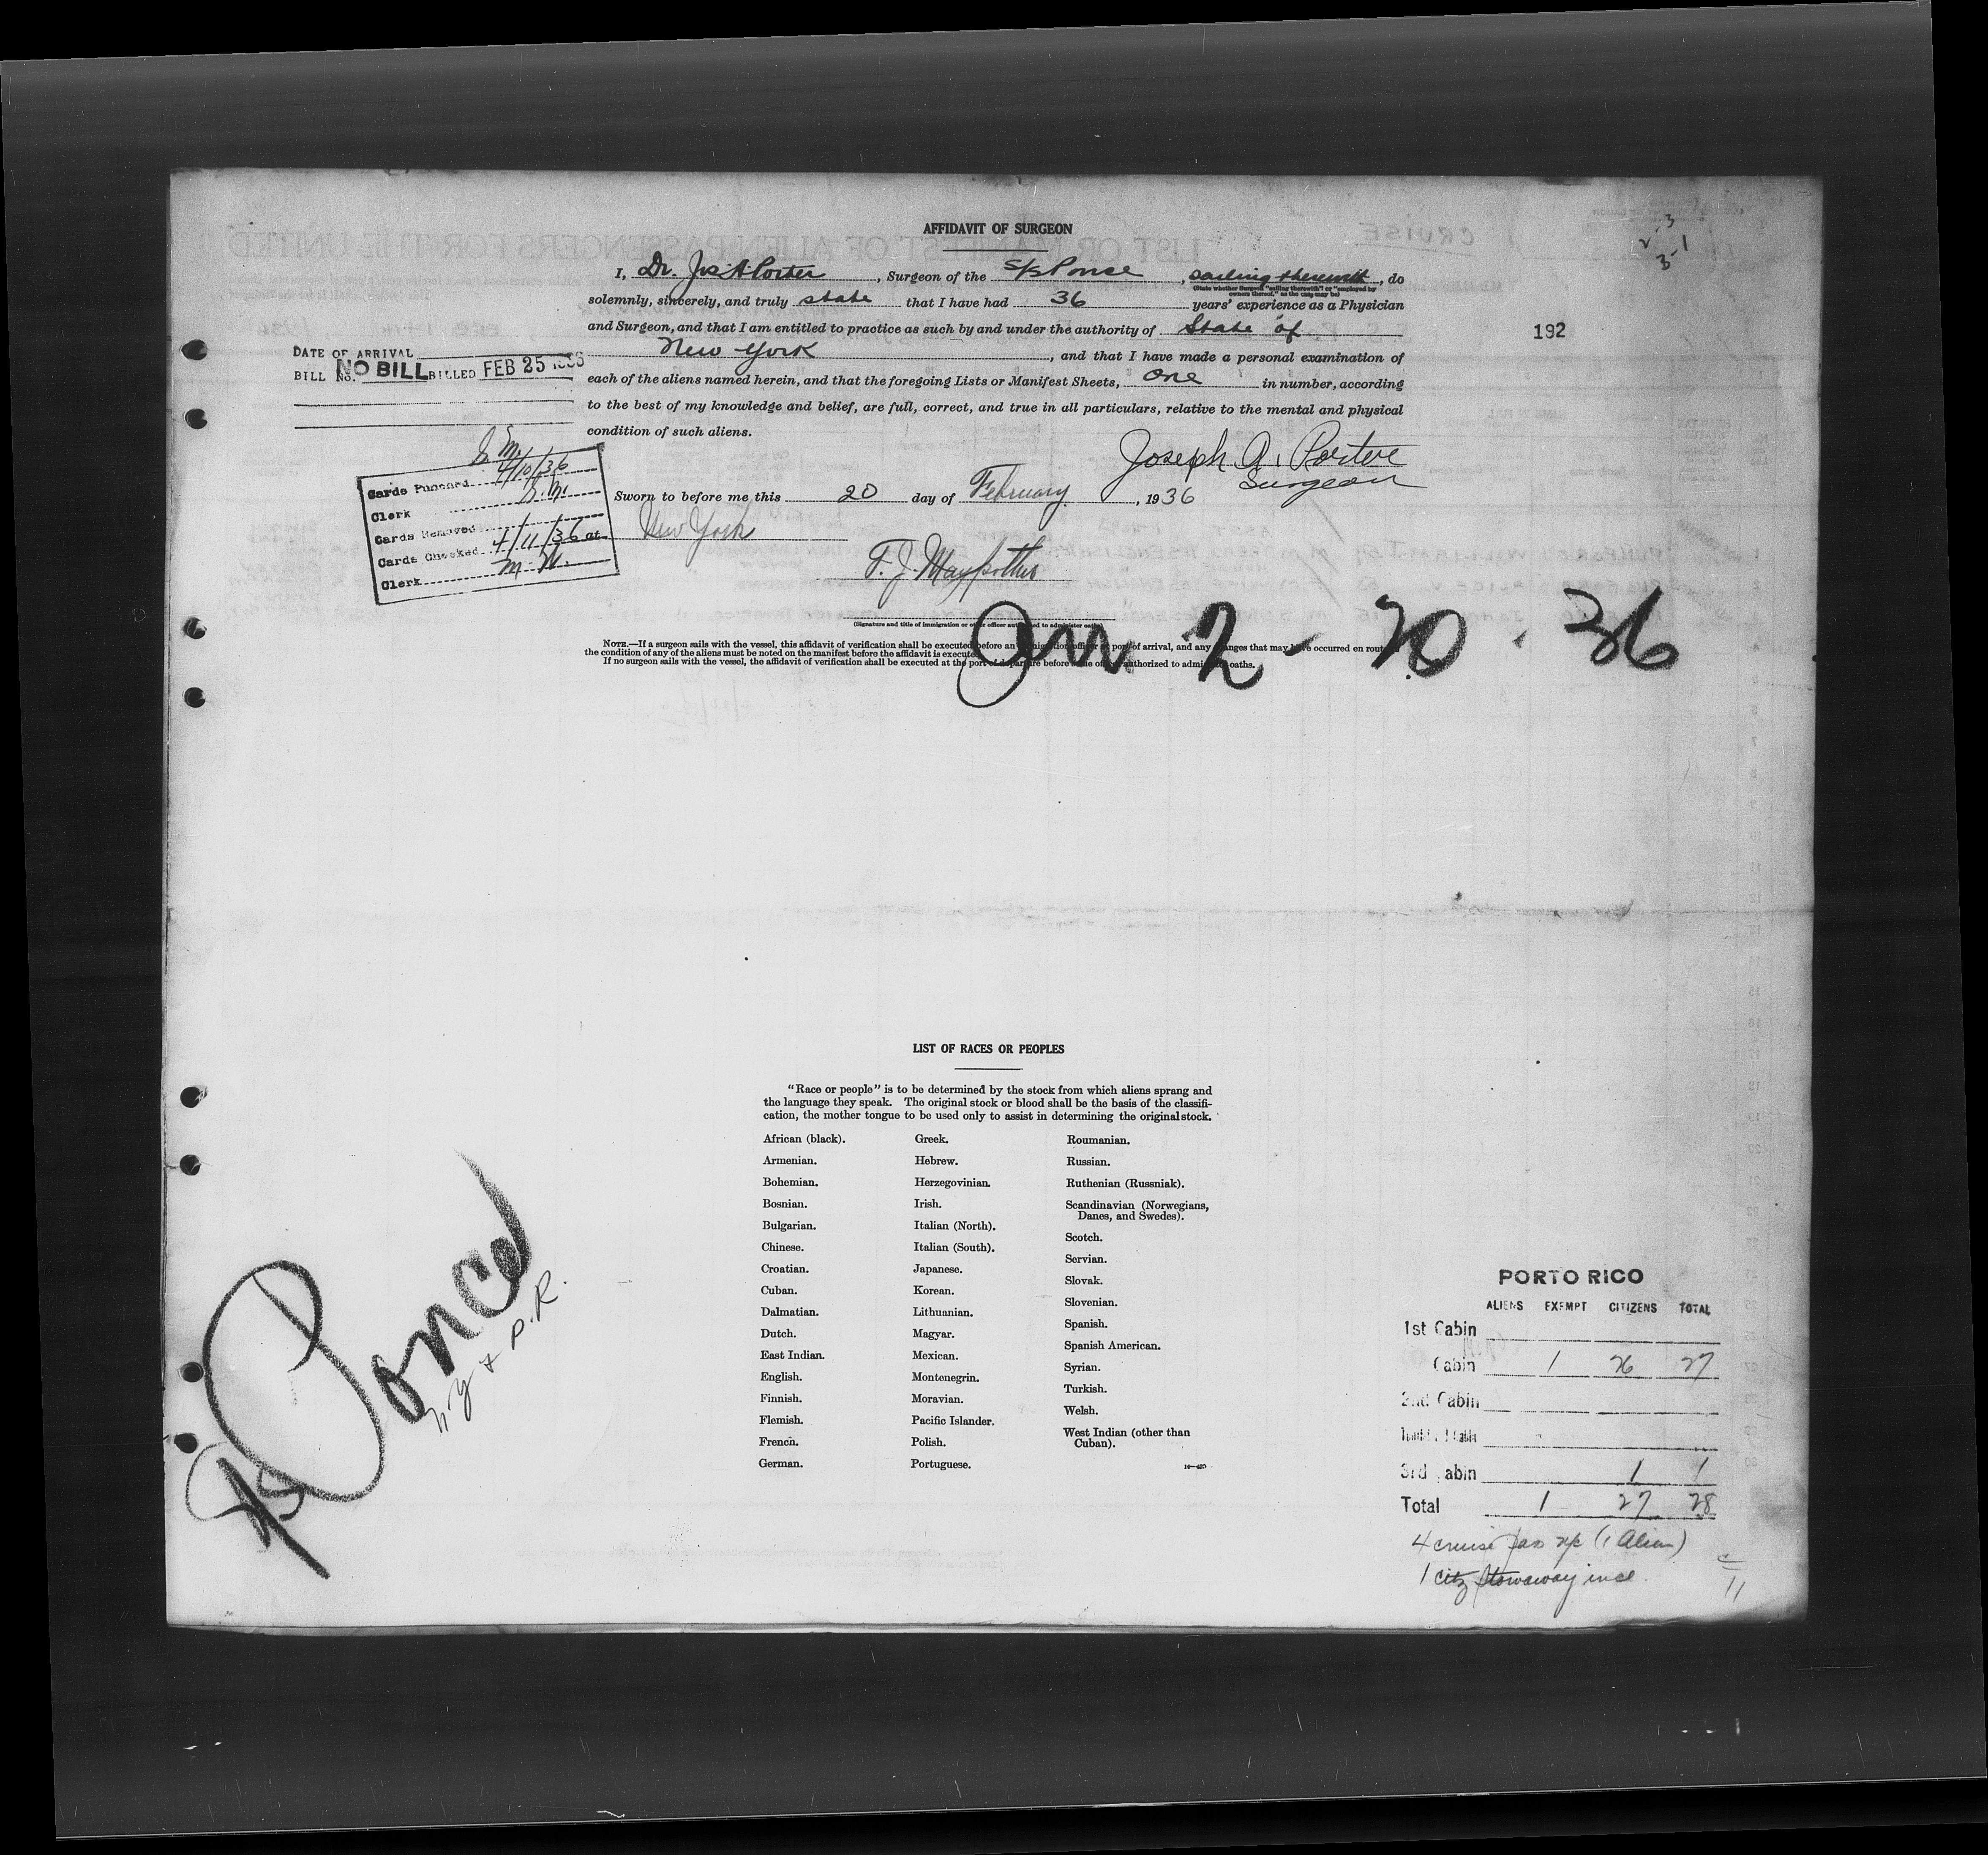 AFFIDAVIT OF SURGEON
I, Dr. Jos A Porter, Surgeon of the S/S Ponce, sailing therewith, do
(State whether Surgeon "sailing therewith" or "employed by
owners thereof," as the case may be)
solemnly, sincerely, and truly state that I have had 36 years' experience as a Physician
and Surgeon, and that I am entitled to practice as such by and under the authority of State of
New York, and that I have made a personal examination of
each of the aliens named herein, and that the foregoing Lists or Manifest Sheets, one in number, according
to the best of my knowledge and belief, are full, correct, and true in all particulars, relative to the mental and physical
condition of such aliens.
192
DATE OF ARRIVAL
BILL No. NO BILL BILLED FEB 25 1936
Joseph A. Porter
Surgeon
4/10/36
Cards Punched
Clerk
Cards Removed
Cards Checked 4/11/36
Clerk M. W.
Sworn to before me this 20 day of February, 1936
at New York
(Signature and title of immigration or other officer authorized to administer oaths)
Arr 2 - 20 - 36
NOTE.—If a surgeon sails with the vessel, this affidavit of verification shall be executed before an immigration officer at port of arrival, and any changes that may have occurred en route in
the condition of any of the aliens must be noted on the manifest before the affidavit is executed.
If no surgeon sails with the vessel, the affidavit of verification shall be executed at the port of departure before some officer authorized to administer oaths.
LIST OF RACES OR PEOPLES
"Race or people" is to be determined by the stock from which aliens sprang and
the language they speak. The original stock or blood shall be the basis of the classifi-
cation, the mother tongue to be used only to assist in determining the original stock.
African (black).
Armenian.
Bohemian.
Bosnian.
Bulgarian.
Chinese.
Croatian.
Cuban.
Dalmatian.
Dutch.
East Indian.
English.
Finnish.
Flemish.
French.
German.
Greek.
Hebrew.
Herzegovinian.
Irish.
Italian (North).
Italian (South).
Japanese.
Korean.
Lithuanian.
Magyar.
Mexican.
Montenegrin.
Moravian.
Pacific Islander.
Polish.
Portuguese.
Roumanian.
Russian.
Ruthenian (Russniak).
Scandinavian (Norwegians,
Danes, and Swedes).
Scotch.
Servian.
Slovak.
Slovenian.
Spanish.
Spanish American.
Syrian.
Turkish.
Welsh.
West Indian (other than
Cuban).
SS Ponce
N.Y. & P.R.
PORTO RICO
ALIENS EXEMPT CITIZENS TOTAL
1st Cabin
Cabin 1 26 27
2nd Cabin
3rd Cabin 1 1
Total 1 27 28
4 cruise pas (1 Alien)
1 citz stowaway incl.
11